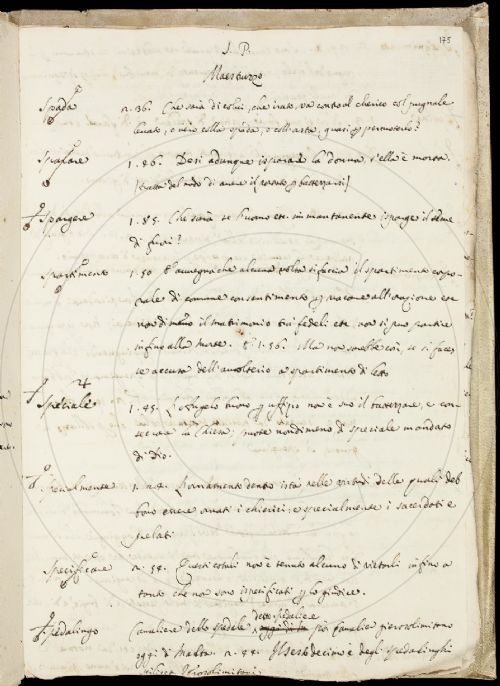 175
S. P.
Maestruzzo
Spada n. 36. Che sarà di colui, che irato, va contro al cherico col pugnale
levato, o vero colla spada, o coll'asta, quasi per percuoterlo?
1. 26. Desi adunque isparare la donna, s'ella è morta.
Spargere 1. 85. Che sarà se l'uomo etc. immantanente isparge il seme
di fuori?
Spartimento 1. 50 avvegnachè alcuna volta si faccia il spartimento corpo-
rale di comune consentimento per vacare all'orazione etc
nondimeno il matrimonio tra' fedeli etc. non si può partire
infino alla morte. 1. 56. Ma non sarebbe così, se si faces-
se accusa dell'avolterio a spartimento di letto
Speciale 1. 45. L'Angelo buono per uffizio non è suo il battezzare, e con-
secrare in Chiesa; puote nondimeno di speciale mandato
di Dio.
Specialmente 1. n. 4. Lornamento dentro istà nelle virtudi delle quali deb-
bono essere ornati i chierici: e specialmente i sacerdoti e
prelati
Specificare n. 34. Questi cotali non è tenuto alcuno di vietarli infino a
tanto che non sono ispecificati per lo giudice.
Spedalingo Cavaliere dello spedale, detto spedaliere poi Cavalier gierosolimitano
oggi di Malta. n. 44. Il sestodecimo è degli spedalinghi